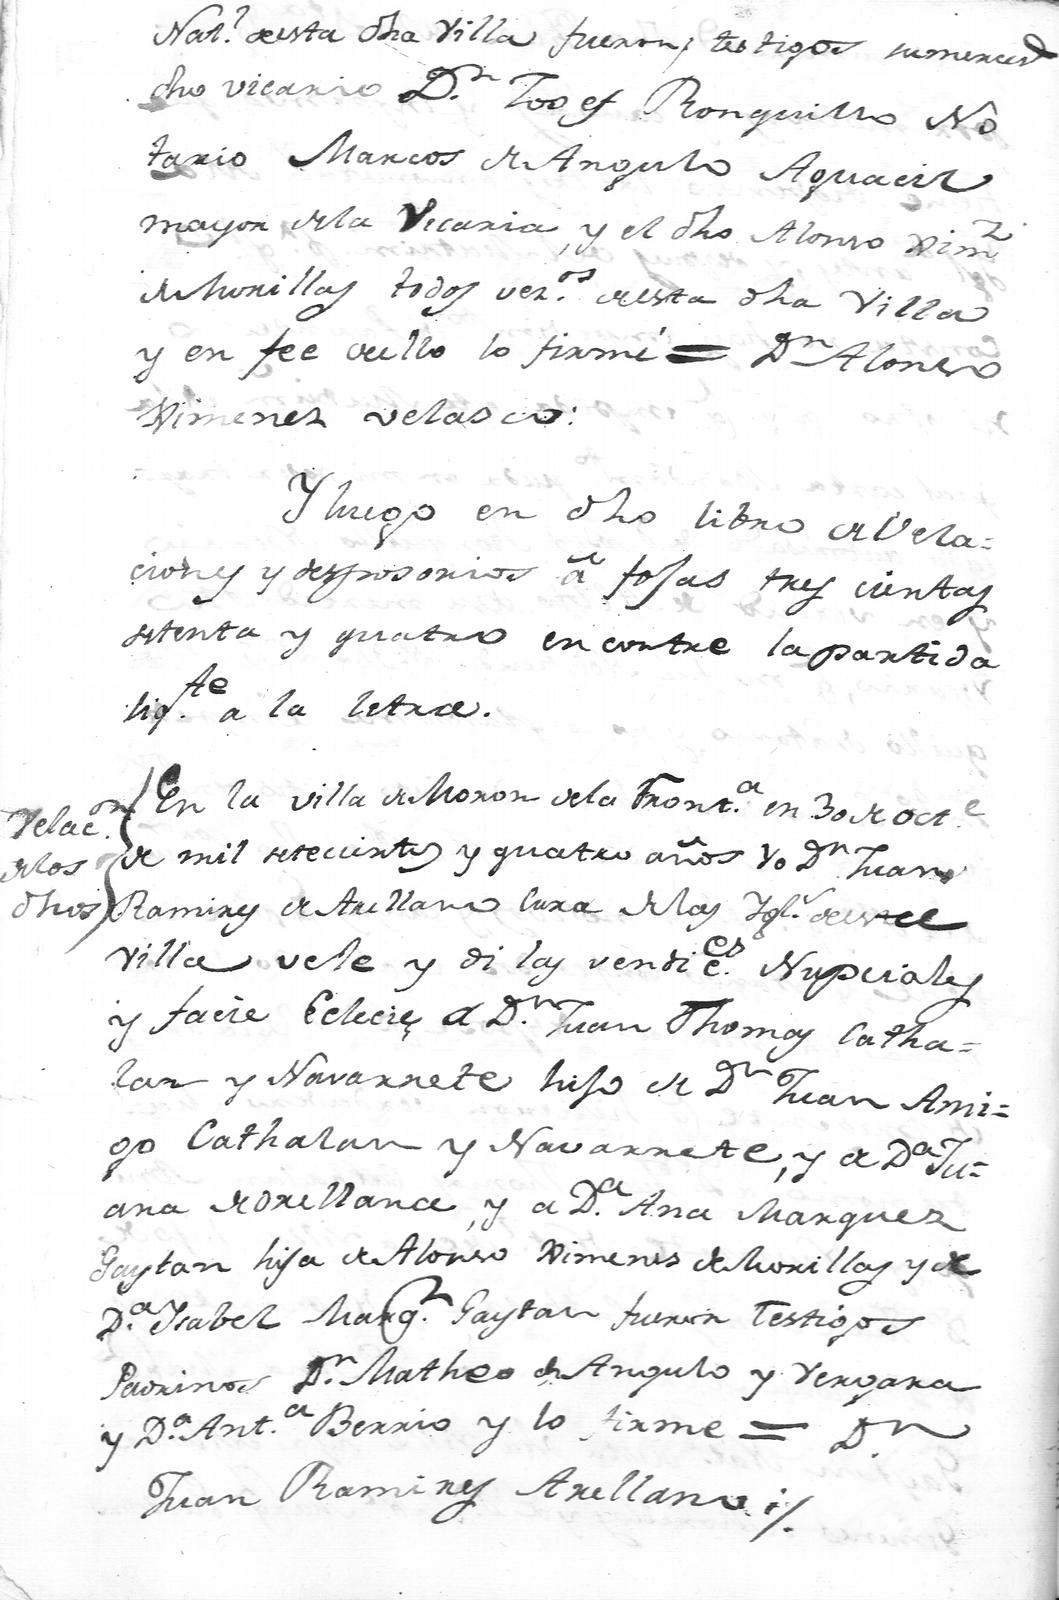 Nat.l desta dha Villa fueron testigos sumerced
dho vicario D.n Josef Ronquillo No
tario Marcos de Angulo Aguacil
mayor dela Vicaria, y el dho Alonso Xim.z
de Morillas todos vez.os desta dha Villa
y en fee dello lo firmé = D.n Alonso
Ximenez velasco:
Y luego en dho libro de Vela=
ciones y desposorios â fojas tres cientas
setenta y quatro encontre la partida
sig.te a la letra.
En la villa de Moron dela Front.a en 30 de Oct.e
de mil setecientos y quatro años Yo D.n Juan
Velac.on
delos
dhos
Ramires de Arellano Cura delas Igl.s desta
Villa vele y di las vendic.es Nupciales
y facie Eclecie a D.n Juan Thomas Catha=
lan y Navarrete hijo de D.n Juan Ami=
go Cathalan y Navarrete, y de D.a Ju=
ana de Orellana, y a D.a Ana Marquez
Gaytan hija de Alonso Ximenes de Morillas y de
D.a Isabel Marq.z Gaytan fueron Testigos
Padrinos D.n Matheo de Angulo y Vergara
y D.a Ant.a Berrio y lo firme = D.n
Juan Ramires Arellano